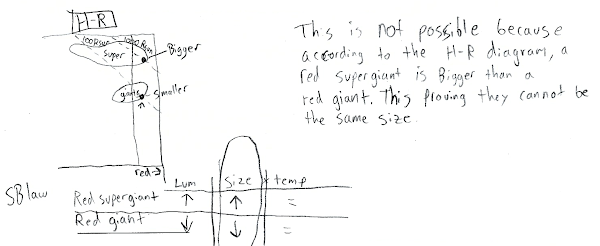 H-R
100Rsun 1000 Rsun
super
Bigger
giants
smaller
red→
This is not possible because
according to the H-R diagram, a
red supergiant is Bigger than a
red giant. This proving they cannot be
the same size.
SB law
Lum size * temp
Red supergiant ↑ ↑ =
Red giant ↓ ↓ =